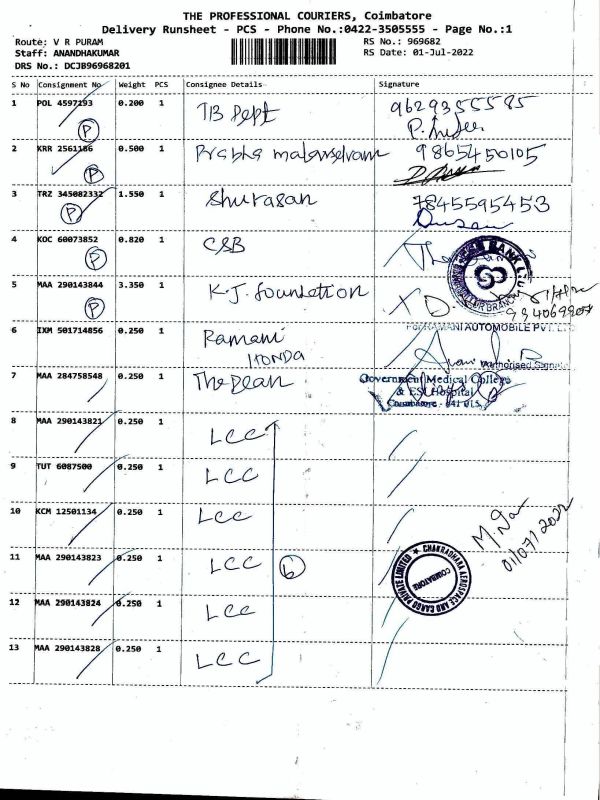 THE PROFESSIONAL COURIERS, Coimbatore
Delivery Runsheet - PCS - Phone No.:0422-3505555 - Page No.:1
Route: V R PURAM
RS No.: 969682
Staff: ANANDHAKUMAR
RS Date: 01-Jul-2022
DRS No.: DCJB96968201
S No Consignment No Weight PCS Consignee Details Signature
1 POL 4597193 0.200 1 TB Dept 9629355585
P
2 KRR 2561186 0.500 1 Prabha malarselvam 9865450105
P
3 TRZ 345082332 1.550 1 Shurasan 7845595453
P
4 KOC 60073852 0.820 1 CSB
P
5 MAA 290143844 3.350 1 K.J. foundation
P
FOR RAMANI AUTOMOBILE PVT. LTD
6 IXM 501714856 0.250 1 Ramani
HONDA
Authorised Signatory
7 MAA 284758548 0.250 1 The Dean Government Medical College
& ESI Hospital
Coimbatore - 641 015.
8 MAA 290143821 0.250 1 LCC
9 TUT 6087500 0.250 1 LCC
10 KCM 12501134 0.250 1 LCC
01/07/2022
11 MAA 290143823 0.250 1 LCC 6
CHAKRADHARA AEROSPACE AND CARGO PRIVATE LIMITED
COIMBATORE
12 MAA 290143824 0.250 1 LCC
13 MAA 290143828 0.250 1 LCC